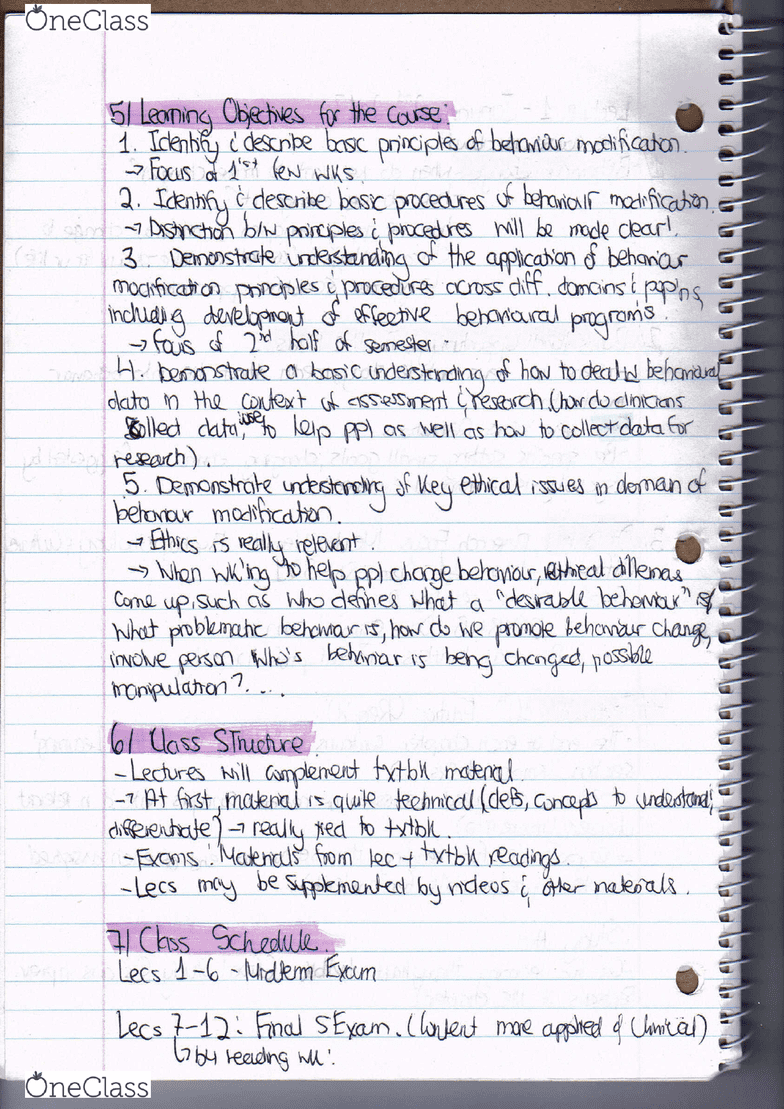 OneClass
5/ Learning Objectives for the Course:
1. Identify & describe basic principles of behaviour modification.
→ Focus of 1'st few wks.
2. Identify & describe basic procedures of behaviour modification.
→ Distinction b/w principles & procedures will be made clear!
3. Demonstrate understanding of the application of behaviour
modification principles & procedures across diff. domains & pop'ns,
including development of effective behavioural programs.
→ Focus of 2nd half of semester.
4. Demonstrate a basic understanding of how to deal w behavioural
data in the context of assessment & research (how do clinicians
collect data, use to help ppl as well as how to collect data for
research).
5. Demonstrate understanding of key ethical issues in domain of
behaviour modification.
→ Ethics is really relevant.
→ When wk'ing to help ppl change behaviour, ethical dillemas
come up, such as who defines what a "desirable behaviour" is/
what problematic behaviour is, how do we promote behaviour change,
involve person who's behaviour is being changed, possible
manipulation?....
6/ Class Structure
- Lectures will complement txtbk material
-→ At first, material is quite technical (defs, concepts to understand &
differentiate} → really tied to txtbk.
- Exams: Materials from lec + txtbk readings
- Lecs may be supplemented by videos & other materials.
7/ Class Schedule.
Lecs 1-6 - Midterm Exam
Lecs 7-12: Final Exam. (Content more applied & Clinical)
reading wk!
OneClass